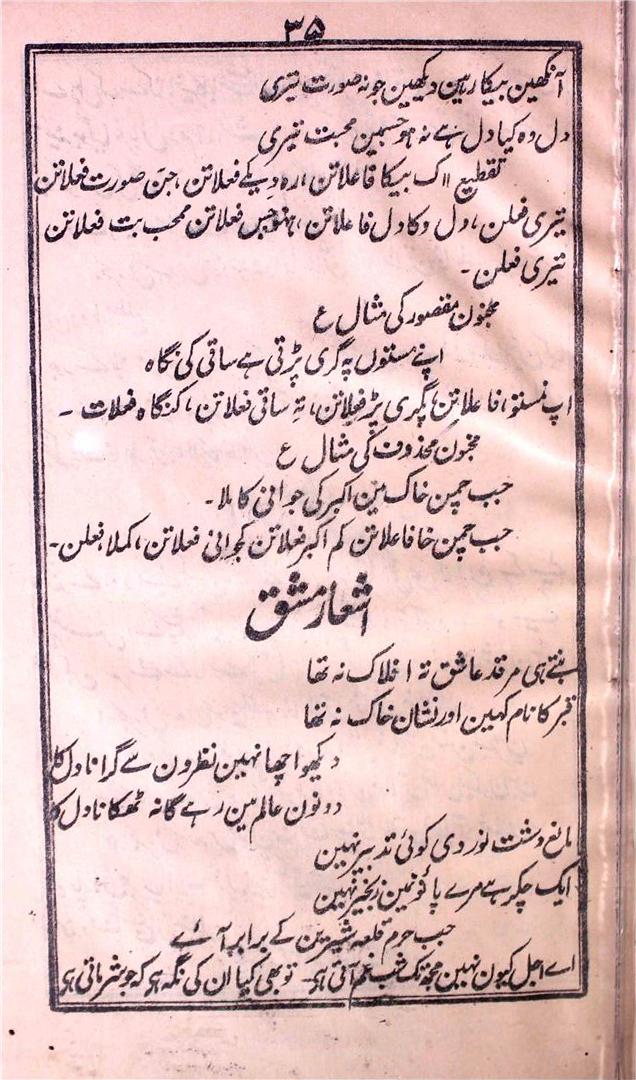 ۳۵
آنکھین بیکار ہین دیکھین جو نہ صورت تیری
دل وہ کیا دل ہے نہ ہو جسمین محبت تیری
تقطیع ااک بیکا فاعلاتن، رہ دِ یکے فعلاتن، جنَ صورت فعلاتن
تیری فعلن، دل وکا دل فاعلاتن، ہنو جس فعلاتن محب بت فعلاتن
تیری فعلن ۔
مخبون مقصور کی مثال ع
اپنے مستوں پہ گری پڑتی ہے ساقی کی نگاہ
اپ نمستو، فاعلاتن، پگری پڑ فعلاتن، تہِ ساقی فعلاتن، کنگاہ فعلات ۔
مخبون محذوف کی مثال ع
جب چمن خاک مین اکبر کی جوانی کا ملا۔
جب چمن خا فاعلاتن کم اکبر فعلاتن کجوانی فعلاتن، کملا، فعلن۔
اشعار مشق
بنتے ہی مرقد عاشق تہ افلاک نہ تھا
قبر کا نام کہین اور نشان خاک نہ تھا
دیکھو اچھا نہین نظرون سے گرانا دل کا
دونون عالم مین رہے گا نہ ٹھکانا دل کا
مانع دشت نوردی کوئی تدبیر نہین
ایک چکر ہے مرے پاؤنمین زنجیر نہین
جب حرم قلعہ شیرین کے برابر آئے
اے اجل کیون نہین مجھ تک شب غم آتی ہو۔ تو بھی کیا ان کی نگہ ہو کہ جو شرماتی ہو